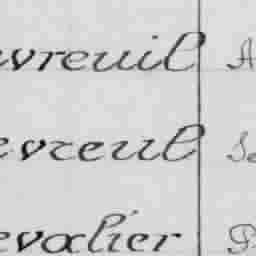 uvreuil A
evreul Se
evalier P